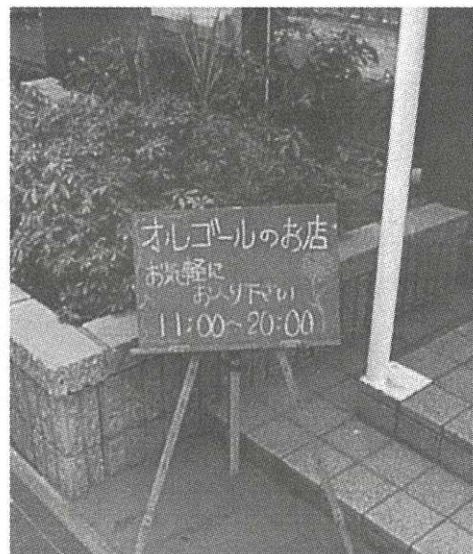 オルゴールのお店
お気軽に
お入り下さい
11:00~20:00